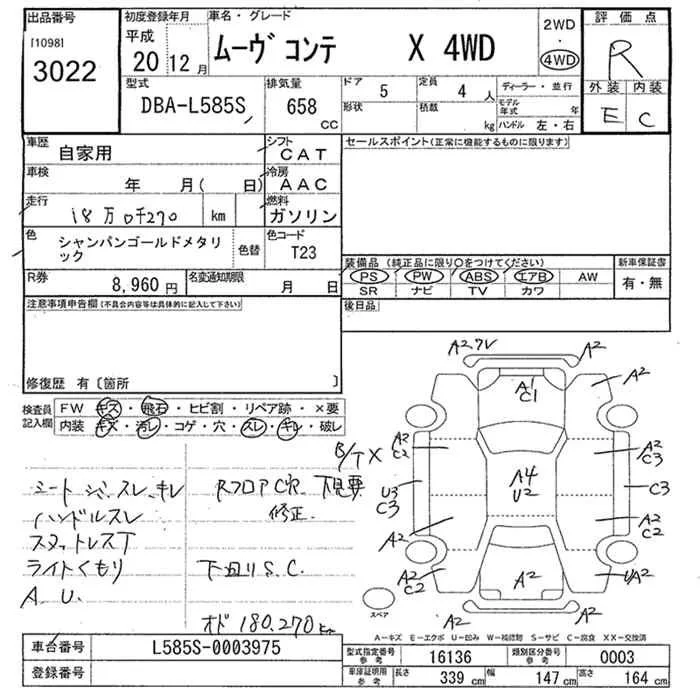 出品番号
[1098]
3022
初度登録年月
平成
20 12 月
車名・グレード
ムーヴ コンテ X 4WD
2WD
・
4WD
評価点
R
外装 内装
E C
型式
DBA-L585S
排気量
658 CC
ドア 5
形状
定員 4 人
積載 kg
ディーラー・並行
モデル年式 年
ハンドル 左・右
車歴
自家用
シフト
CAT
車検
年 月( 日)
冷房
AAC
走行
18万0千270 km
燃料
ガソリン
色
シャンパンゴールドメタリック
色替
色コード
T23
R券
8,960 円
名変通知期限
月 日
セールスポイント(正常に機能するものに限ります)
装備品 (純正品に限り○をつけてください)
PS PW ABS エアB AW
SR ナビ TV カワ
新車保証書
有・無
後日品
注意事項申告欄(不具合内容等は具体的に記入して下さい)
修復歴 有〔箇所 〕
検査員記入欄
FW キズ・飛石・ヒビ割・リペア跡・×要
内装 キズ・汚レ・コゲ・穴・スレ・キレ・破レ
シート シミ、スレ、キレ
ハンドルスレ
スカットレスT
ライトくもり
A.U.
B/TX
RフロアC穴 下見要
修正.
下回りS.C.
オド180,270km
A2
A2
A1
C1
A2
A2
C2
A2
C3
U3
C3
A4
U2
C3
A2
A2
C2
A2
C2
A2
UA2
A2
A2
スペア
A－キズ E－エクボ U－凹み W－補修跡 S－サビ C－腐食 XX－交換済
車台番号 L585S-0003975
登録番号
型式指定番号 参考 16136
類別区分番号 参考 0003
車庫証明用 参考
長さ 339 cm 幅 147 cm 高さ 164 cm